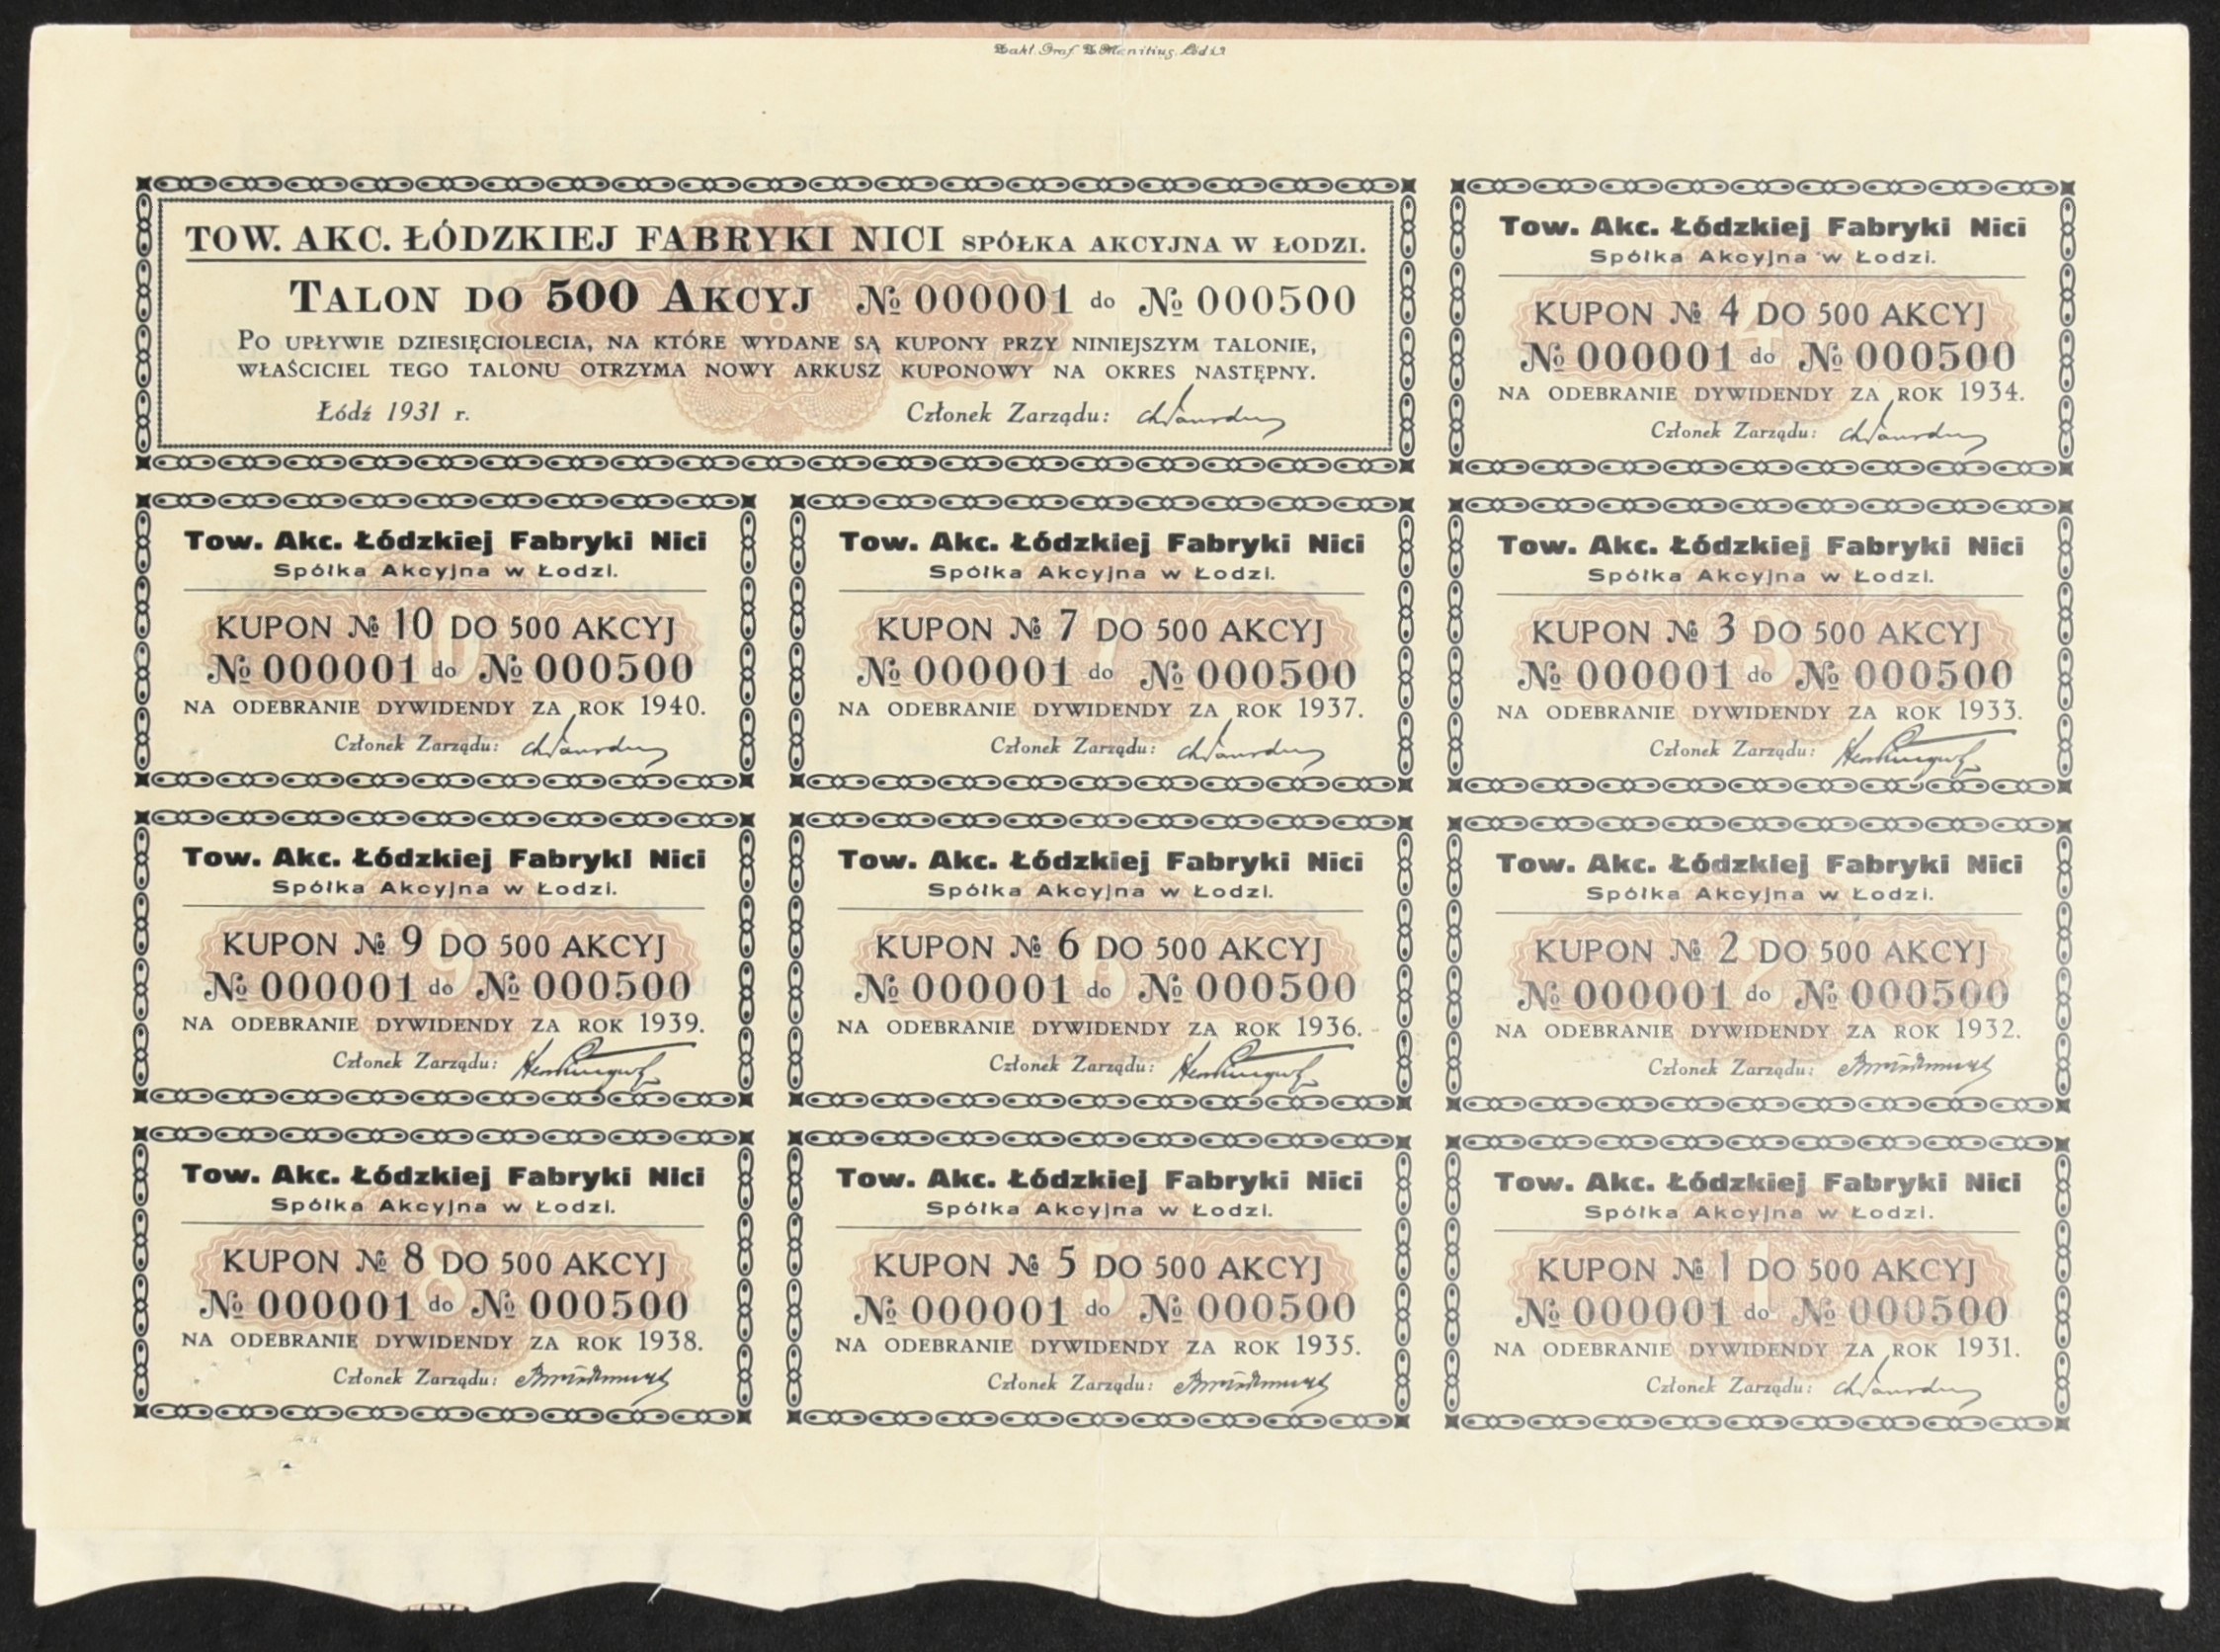 Zakł. Graf. Manitius. Łódź
TOW. AKC. ŁÓDZKIEJ FABRYKI NICI SPÓŁKA AKCYJNA W ŁODZI.
TALON DO 500 AKCYJ № 000001 do № 000500
PO UPŁYWIE DZIESIĘCIOLECIA, NA KTÓRE WYDANE SĄ KUPONY PRZY NINIEJSZYM TALONIE,
WŁAŚCICIEL TEGO TALONU OTRZYMA NOWY ARKUSZ KUPONOWY NA OKRES NASTĘPNY.
Łódź 1931 r. Członek Zarządu:
Tow. Akc. Łódzkiej Fabryki Nici
Spółka Akcyjna w Łodzi.
KUPON № 4 DO 500 AKCYJ
№ 000001 do № 000500
NA ODEBRANIE DYWIDENDY ZA ROK 1934.
Członek Zarządu:
Tow. Akc. Łódzkiej Fabryki Nici
Spółka Akcyjna w Łodzi.
KUPON № 10 DO 500 AKCYJ
№ 000001 do № 000500
NA ODEBRANIE DYWIDENDY ZA ROK 1940.
Członek Zarządu:
Tow. Akc. Łódzkiej Fabryki Nici
Spółka Akcyjna w Łodzi.
KUPON № 7 DO 500 AKCYJ
№ 000001 do № 000500
NA ODEBRANIE DYWIDENDY ZA ROK 1937.
Członek Zarządu:
Tow. Akc. Łódzkiej Fabryki Nici
Spółka Akcyjna w Łodzi.
KUPON № 3 DO 500 AKCYJ
№ 000001 do № 000500
NA ODEBRANIE DYWIDENDY ZA ROK 1933.
Członek Zarządu:
Tow. Akc. Łódzkiej Fabryki Nici
Spółka Akcyjna w Łodzi.
KUPON № 9 DO 500 AKCYJ
№ 000001 do № 000500
NA ODEBRANIE DYWIDENDY ZA ROK 1939.
Członek Zarządu:
Tow. Akc. Łódzkiej Fabryki Nici
Spółka Akcyjna w Łodzi.
KUPON № 6 DO 500 AKCYJ
№ 000001 do № 000500
NA ODEBRANIE DYWIDENDY ZA ROK 1936.
Członek Zarządu:
Tow. Akc. Łódzkiej Fabryki Nici
Spółka Akcyjna w Łodzi.
KUPON № 2 DO 500 AKCYJ
№ 000001 do № 000500
NA ODEBRANIE DYWIDENDY ZA ROK 1932.
Członek Zarządu:
Tow. Akc. Łódzkiej Fabryki Nici
Spółka Akcyjna w Łodzi.
KUPON № 8 DO 500 AKCYJ
№ 000001 do № 000500
NA ODEBRANIE DYWIDENDY ZA ROK 1938.
Członek Zarządu:
Tow. Akc. Łódzkiej Fabryki Nici
Spółka Akcyjna w Łodzi.
KUPON № 5 DO 500 AKCYJ
№ 000001 do № 000500
NA ODEBRANIE DYWIDENDY ZA ROK 1935.
Członek Zarządu:
Tow. Akc. Łódzkiej Fabryki Nici
Spółka Akcyjna w Łodzi.
KUPON № 1 DO 500 AKCYJ
№ 000001 do № 000500
NA ODEBRANIE DYWIDENDY ZA ROK 1931.
Członek Zarządu: